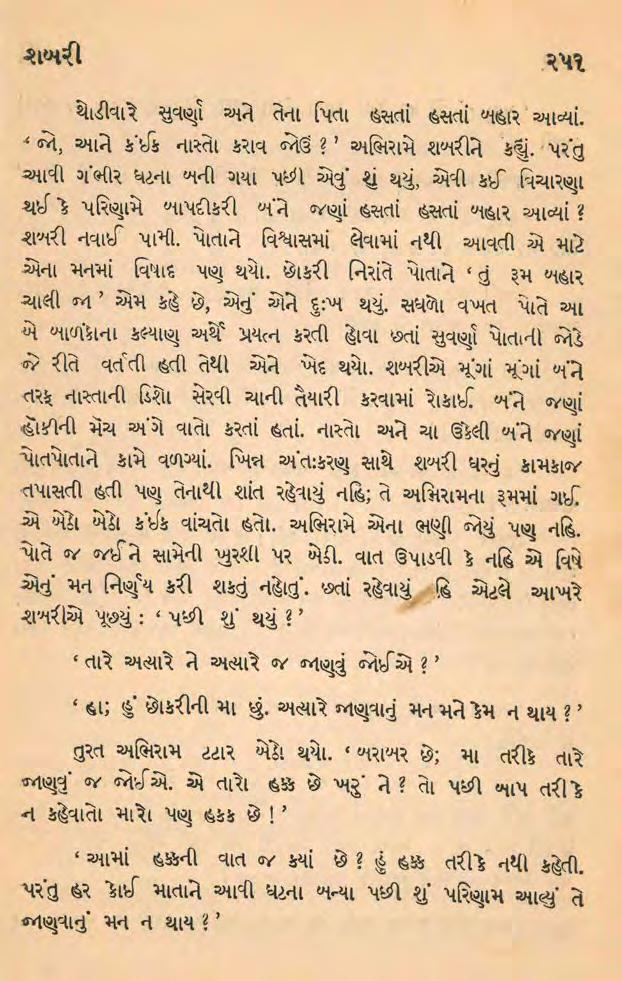 શબરી ૨૫૧
થોડીવારે સુવર્ણા અને તેના પિતા હસતાં હસતાં બહાર આવ્યાં.
‘ જો, આને કંઈક નાસ્તો કરાવ જોઉં ? ’ અભિરામે શબરીને કહ્યું. પરંતુ
આવી ગંભીર ઘટના બની ગયા પછી એવું શું થયું, એવી કઈ વિચારણા
થઈ કે પરિણામે બાપદીકરી બંને જણાં હસતાં હસતાં બહાર આવ્યાં ?
શબરી નવાઈ પામી. પોતાને વિશ્વાસમાં લેવામાં નથી આવતી એ માટે
એના મનમાં વિષાદ પણ થયો. છોકરી નિરાંતે પોતાને ‘ તું રૂમ બહાર
ચાલી જા ’ એમ કહે છે, એનું એને દુઃખ થયું. સઘળો વખત પોતે આ
બે બાળકોના કલ્યાણ અર્થે પ્રયત્ન કરતી હોવા છતાં સુવર્ણા પોતાની જોડે
જે રીતે વર્તતી હતી તેથી એને ખેદ થયો. શબરીએ મૂંગાં મૂંગાં બંને
તરફ નાસ્તાની ડિશો સેરવી ચાની તૈયારી કરવામાં રોકાઈ. બંને જણાં
હૉકીની મૅચ અંગે વાતો કરતાં હતાં. નાસ્તો અને ચા ઉકેલી બંને જણાં
પોતપોતાને કામે વળગ્યાં. ખિન્ન અંતઃકરણ સાથે શબરી ઘરનું કામકાજ
તપાસતી હતી પણ તેનાથી શાંત રહેવાયું નહિ; તે અભિરામના રૂમમાં ગઈ.
એ બેઠો બેઠો કંઈક વાંચતો હતો. અભિરામે એના ભણી જોયું પણ નહિ.
પોતે જ જઈને સામેની ખુરશી પર બેઠી. વાત ઉપાડવી કે નહિ એ વિષે
એનું મન નિર્ણય કરી શકતું નહોતું. છતાં રહેવાયું હિ એટલે આખરે
શબરીએ પૂછ્યું : ‘ પછી શું થયું ? ’
‘ તારે અત્યારે ને અત્યારે જ જાણવું જોઈએ ? ’
‘ હા; હું છોકરીની મા છું. અત્યારે જાણવાનું મન મને કેમ ન થાય ? ’
તુરત અભિરામ ટટાર બેઠો થયો. ‘ બરાબર છે; મા તરીકે તારે
જાણવું જ જોઈએ. એ તારો હક્ક છે ખરું ને ? તો પછી બાપ તરીકે
ન કહેવાતો મારો પણ હકક છે ! ’
‘ આમાં હક્કની વાત જ ક્યાં છે ? હું હક્ક તરીકે નથી કહેતી.
પરંતુ હર કોઈ માતાને આવી ઘટના બન્યા પછી શું પરિણામ આવ્યું તે
જાણવાનું મન ન થાય ? ’